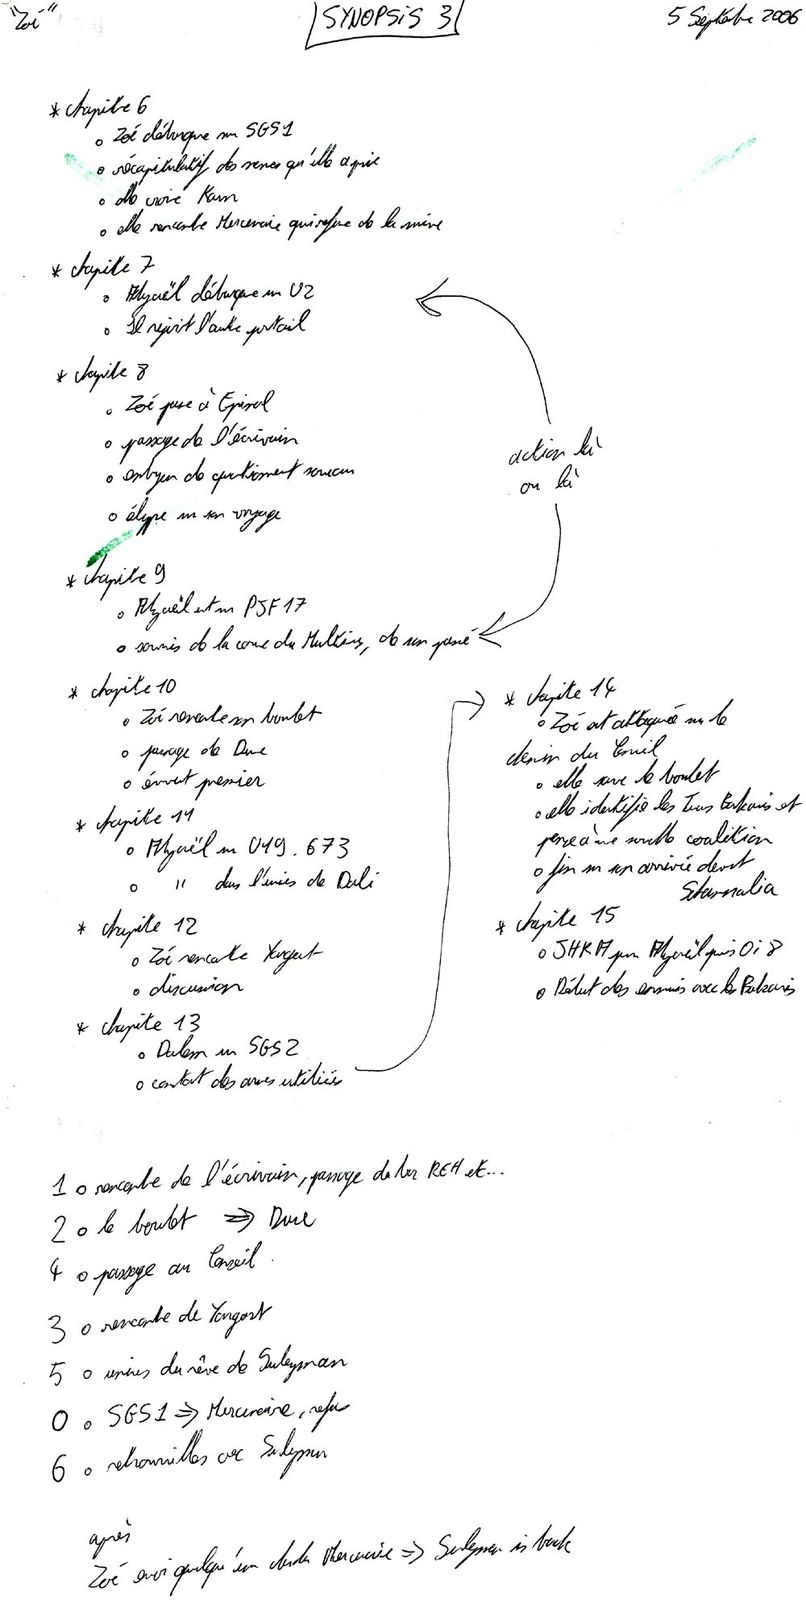 "Zoé"
SYNOPSIS 3
5 Septembre 2006
* chapitre 6
o Zoé débarque sur SGS1
o récapitulatif des sences qu'elle a prise
o elle croise Karn
o elle rencontre Mercenaire qui refuse de la suivre
* chapitre 7
o débarque sur U2
o Il rejoint l'autre portail
* chapitre 8
o Zoé passe à Epinal
o passage de l'écrivain
o de questionnement
o étape sur son voyage
action là
ou là
* chapitre 9
o est sur PJF17
o soumis de la du Multivers, de son passé
* chapitre 10
o Zoé rencontre son boulet
o passage de Duce
o premier
* chapitre 11
o sur U49.673
o " dans l'univers de Dali
* chapitre 12
o Zoé rencontre Yorgost
o discussion
* chapitre 13
o sur SGS2
o constat des armes utilisées
* chapitre 14
o Zoé est attaquée sur le
chemin du Conseil
o elle sauve le boulet
o elle identifie les et
pense à une nouvelle coalition
o fin sur son arrivée devant
* chapitre 15
o JHKM pour puis Oi8
o Début des ennuis avec les
1 o rencontre de l'écrivain, passage de REH et...
2 o le boulet => Duce
4 o passage au Conseil
3 o rencontre de Yorgost
5 o univers du rêve de Suleyman
0 o SGS1 => Mercenaire, refus
6 o retrouvailles avec Suleyman
après
Zoé envoie quelqu'un chercher Mercenaire => Suleyman is back